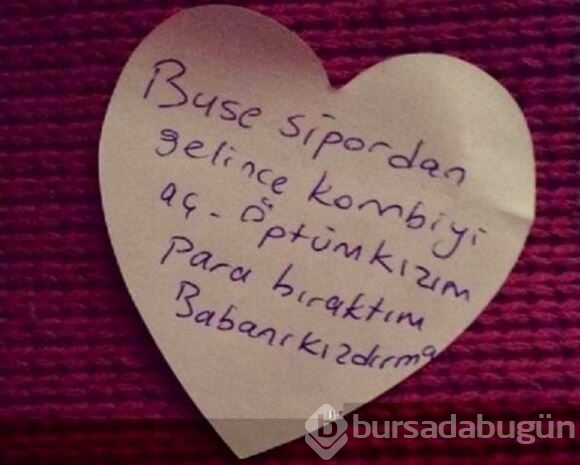 Buse sipordan
gelince kombiyi
aç - Öptümkızım
Para bıraktım
Babanıkızdırma
bursadabugün